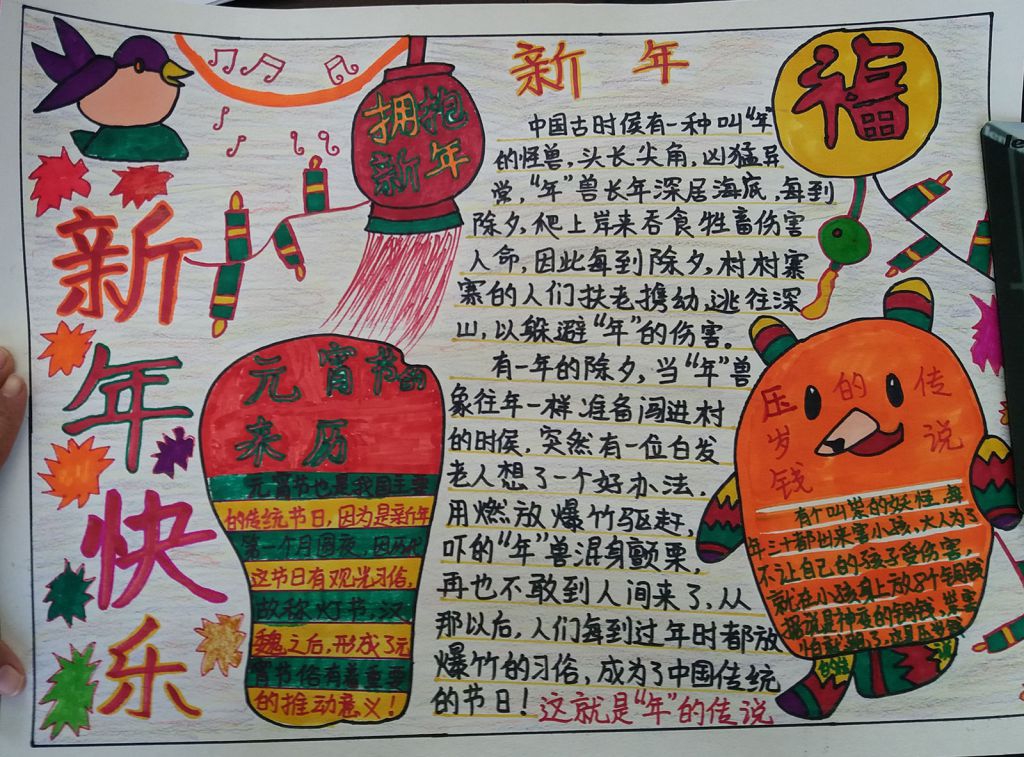 新年快乐
拥抱
新年
新年
中国古时侯有一种叫“年”
的怪兽，头长尖角，凶猛异
常，“年”兽长年深居海底，每到
除夕，爬上岸来吞食牲畜伤害
人命，因此每到除夕，村村寨
寨的人们扶老携幼逃往深
山，以躲避“年”的伤害。
有一年的除夕，当“年”兽
象往年一样准备闯进村
的时侯，突然有一位白发
老人想了一个好办法，
用燃放爆竹驱赶，
吓的“年”兽混身颤栗，
再也不敢到人间来了，从
那以后，人们每到过年时都放
爆竹的习俗，成为了中国传统
的节日！这就是“年”的传说
福
元宵节的
来历
元宵节也是我国主要
的传统节日，因为是新年
第一个月圆夜，因历代
这节日有观光习俗，
故称灯节，汉
魏之后，形成了元
宵节俗有着重要
的推动意义！
压岁钱的传说
有个叫祟的妖怪，每
年三十都出来害小孩，大人为了
不让自己的孩子受伤害，
就在小孩身上放8个铜钱
据说是神夜的铜钱，祟害
怕就跑了，这是压岁